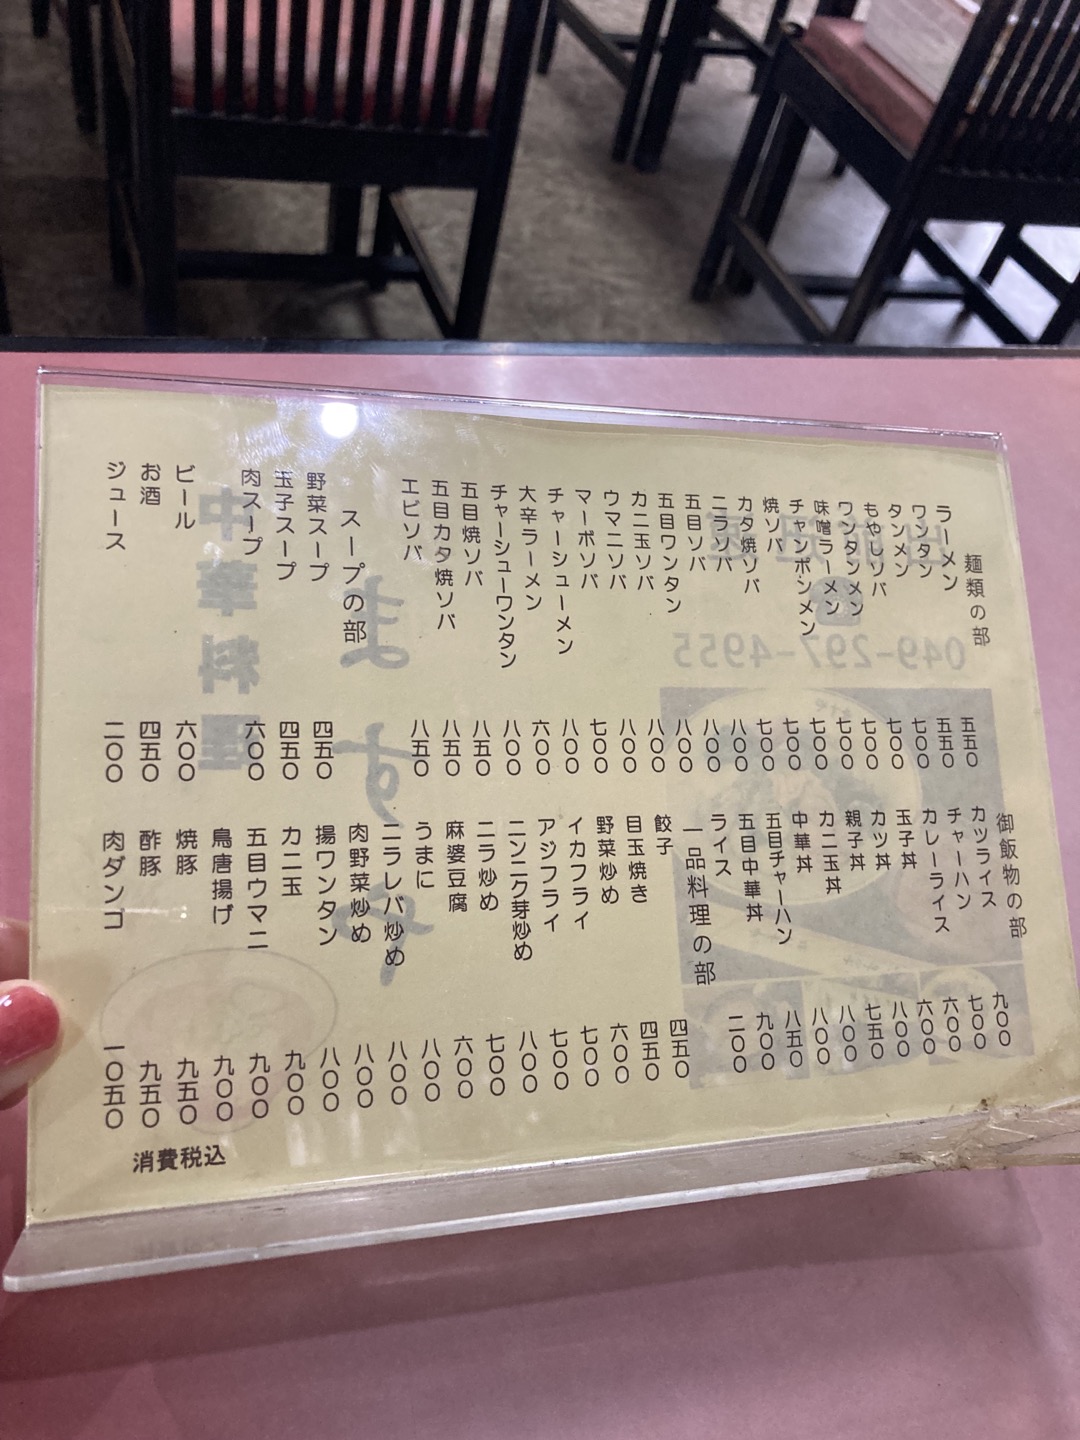 麺類の部
ラーメン 五五〇
ワンタン 五五〇
タンメン 七〇〇
もやしソバ 七〇〇
ワンタンメン 七〇〇
味噌ラーメン 七〇〇
チャンポンメン 七〇〇
焼ソバ 七〇〇
カタ焼ソバ 七〇〇
ニラソバ 八〇〇
五目ソバ 八〇〇
五目ワンタン 八〇〇
カニ玉ソバ 八〇〇
ウマニソバ 八〇〇
マーボソバ 七〇〇
チャーシューメン 八〇〇
大辛ラーメン 六〇〇
チャーシューワンタン 八〇〇
五目焼ソバ 八五〇
五目カタ焼ソバ 八五〇
エビソバ 八五〇
スープの部
野菜スープ 四五〇
玉子スープ 四五〇
肉スープ 六〇〇
ビール 六〇〇
お酒 四五〇
ジュース 二〇〇
御飯物の部
カツライス 九〇〇
チャーハン 七〇〇
カレーライス 六〇〇
玉子丼 六〇〇
カツ丼 八〇〇
親子丼 七五〇
カニ玉丼 八〇〇
中華丼 八〇〇
五目チャーハン 八五〇
五目中華丼 九〇〇
ライス 二〇〇
一品料理の部
餃子 四五〇
目玉焼き 四五〇
野菜炒め 六〇〇
イカフライ 七〇〇
アジフライ 七〇〇
ニンニク芽炒め 八〇〇
ニラ炒め 七〇〇
麻婆豆腐 六〇〇
うまに 八〇〇
ニラレバ炒め 八〇〇
肉野菜炒め 八〇〇
揚ワンタン 八〇〇
カニ玉 九〇〇
五目ウマニ 九〇〇
鳥唐揚げ 九〇〇
焼豚 九五〇
酢豚 九五〇
肉ダンゴ 一〇五〇
消費税込
中華料理
ますや
出前迅速
049-297-4955